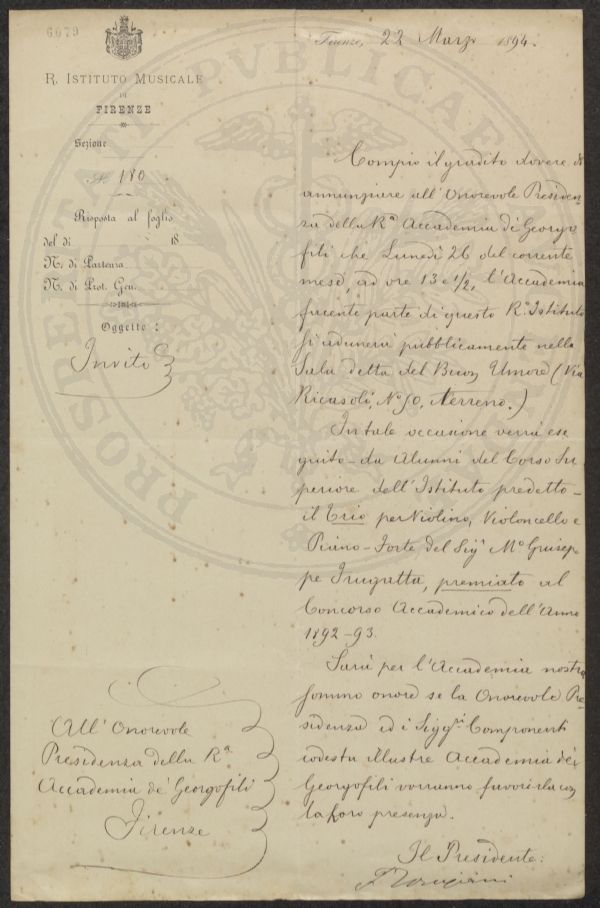 6079
Firenze, 22 Marzo 1894.
R. ISTITUTO MUSICALE
DI
FIRENZE
Sezione
N. 180
Risposta al foglio
del dì 18
N. di Partenza
N. di Prot. Gen.
Oggetto:
Invito
Compio il gradito dovere di
annunziare all'Onorevole Presiden-
za della Rª Accademia di Georgo
fili che Lunedì 26 del corrente
mese, ad ore 13 e 1/2, l'Accademia
facente parte di questo Rº Istituto
si adunerà pubblicamente nella
Sala detta del Buon Umore (Via
Ricasoli, Nº 50, terreno.)
In tale occasione verrà ese
guito da Alunni del Corso Su
periore dell'Istituto predetto
il Trio per Violino, Violoncello e
Piano-Forte, del Sigr Mº Giusep
pe Frugatta, premiato al
Concorso Accademico dell'Anno
1892-93.
Sarà per l'Accademia nostra
sommo onore se la Onorevole Pre
sidenza ed i Siggri Componenti
codesta illustre Accademia dei
Georgofili vorranno favorirla con
la loro presenza.
Il Presidente:
All'Onorevole
Presidenza della Rª
Accademia de' Georgofili
Firenze
PROSPERITATI PVBLICAE